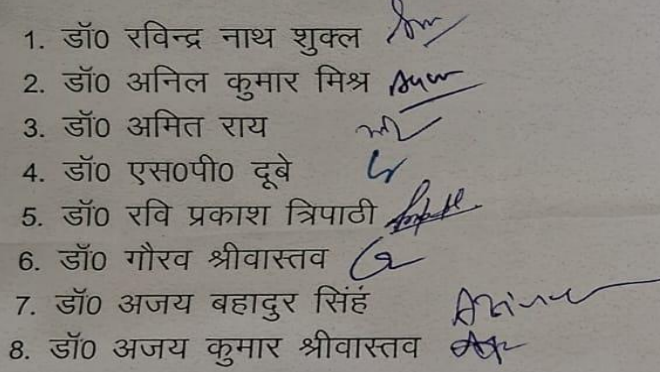 1. डॉ0 रविन्द्र नाथ शुक्ल
2. डॉ0 अनिल कुमार मिश्र
3. डॉ0 अमित राय
4. डॉ0 एस0पी0 दूबे
5. डॉ0 रवि प्रकाश त्रिपाठी
6. डॉ0 गौरव श्रीवास्तव
7. डॉ0 अजय बहादुर सिंहं
8. डॉ0 अजय कुमार श्रीवास्तव